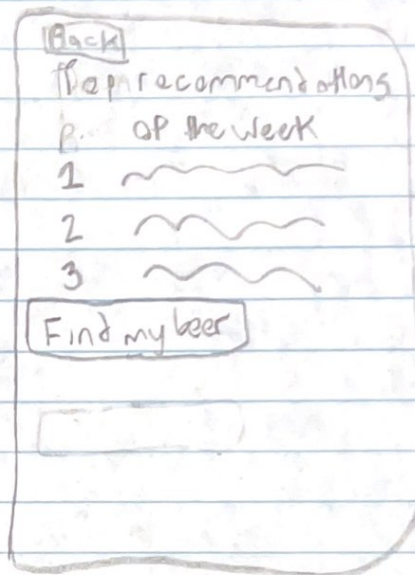 Back
Top recommendations
of the week
1
2
3
Find my beer